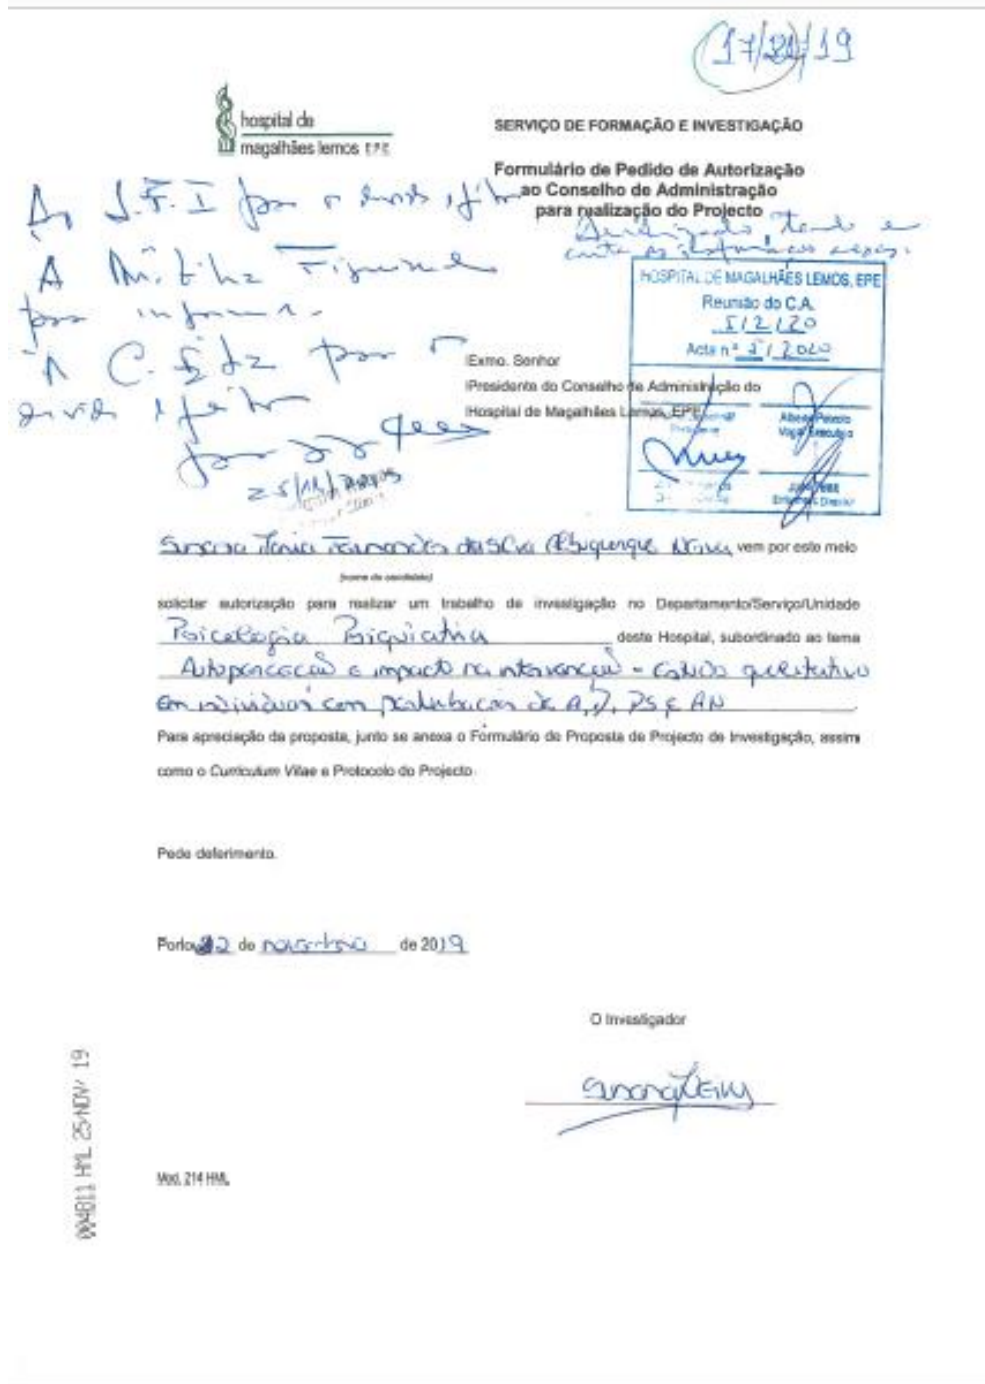 17/
/19
hospital de
magalhães lemos EPE
SERVIÇO DE FORMAÇÃO E INVESTIGAÇÃO
Formulário de Pedido de Autorização
ao Conselho de Administração
para realização do Projecto
Ao S.F.I para o devido efeito
Autorizado, tendo em
conta as informações
À
para informar.
À C. Ética para o
devido efeito
HOSPITAL DE MAGALHÃES LEMOS, EPE
Reunião do C.A.
5/2/20
Acta nº 5/2020
Exmo. Senhor
Presidente do Conselho de Administração do
Hospital de Magalhães Lemos, EPE
Presidente
Alberto Peixoto
Vogal Executivo
25/11/
Enfermeiro Director
Fernandes da Silva Albuquerque
vem por este meio
(nome do candidato)
solicitar autorização para realizar um trabalho de investigação no Departamento/Serviço/Unidade
Psicologia Psiquiatria deste Hospital, subordinado ao tema
Autopercepção e impacto na intervenção - estudo
em indivíduos com perturbação de A, D, PS e AN
Para apreciação da proposta, junto se anexa o Formulário de Proposta de Projecto de Investigação, assim
como o Curriculum Vitae e Protocolo do Projecto.
Pede deferimento.
Porto, 22 de novembro de 2019
O Investigador
004811 HML 25/NOV/ 19
Mod. 214 HML